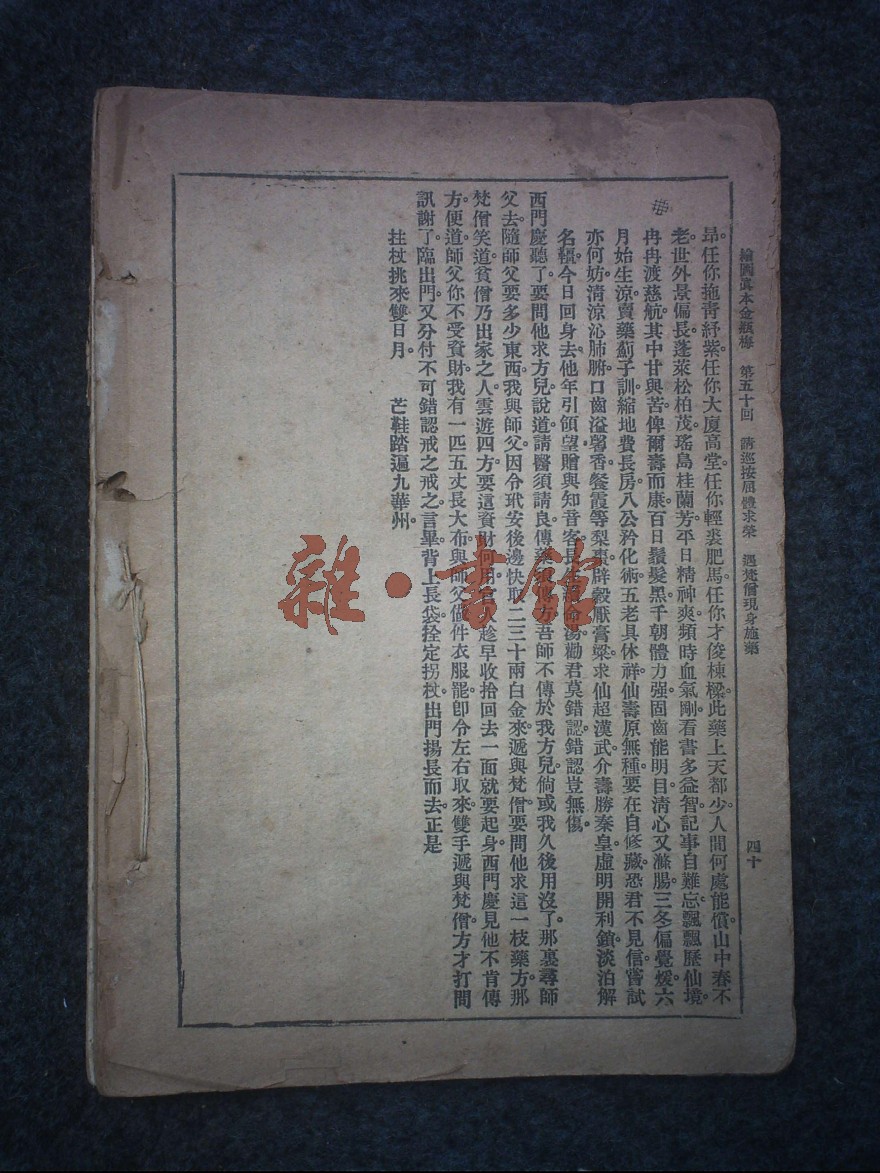 繪圖眞本金瓶梅　第五十回　請巡按屈體求榮　遇梵僧現身施藥　四十
昂。任你拖靑紆紫。任你大廈高堂。任你輕裘肥馬。任你才俊棟樑。此藥上天都少。人間何處能償。山中春不
老。世外景偏長。蓬萊松柏茂。瑤島桂蘭芳。平日精神爽。頻時血氣剛。看書多益智。記事自難忘。飄飄歷仙境。
冉冉渡慈航。其中甘與苦。俾爾壽而康。百日鬚髮黑。千朝體力强。固齒能明目。淸心又滌腸。三冬偏覺煖。六
月始生涼。賣藥薊子訓。縮地費長房。八公矜化術。五老具休祥。仙壽原無種。要在自修藏。恐君不見信。嘗試
亦何妨。淸涼沁肺腑。口齒溢馨香。餐霞等梨棗。辟穀厭膏粱。求仙超漢武。介壽勝秦皇。虛明開利鎖。淡泊解
名韁。今日回身去。他年引領望。贈與知音客。長生命湯。勸君莫錯認。錯認豈無傷。
西門慶聽了。要問他求方兒。說道。請醫須請良。傳藥須方。吾師不傳於我方兒。倘或我久後用沒了。那裏尋師
父去。隨師父要多少東西。我與師父。因令玳安後邊快取二三十兩白金來。遞與梵僧。要問他求這一枝藥方。那
梵僧笑道。貧僧乃出家之人。雲遊四方。要這資財何用。官人趁早收拾回去。一面就要起身。西門慶見他不肯傳
方。便道。師父你不受資財。我有一匹五丈長大布。與師父做件衣服罷。卽令左右取來。雙手遞與梵僧。方才打問
訊謝了。臨出門。又分付不可錯認。戒之戒之。言畢。背上長袋。拴定拐杖。出門揚長而去。正是
拄杖挑來雙日月。　芒鞋踏遍九華州。
雜·書館